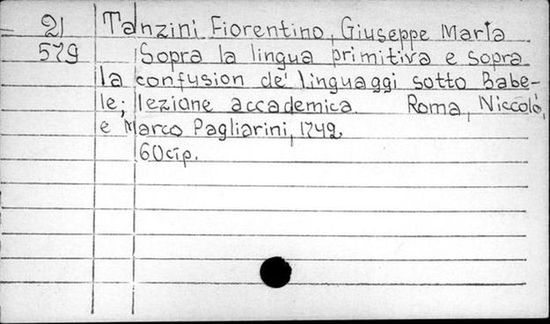 21 Tanzini Fiorentino, Giuseppe Maria
579 Sopra la lingua primitiva e sopra
la confusion de' linguaggi sotto Babe-
le; lezione accademica. Roma, Niccolò,
e Marco Pagliarini, 1742.
60cip.